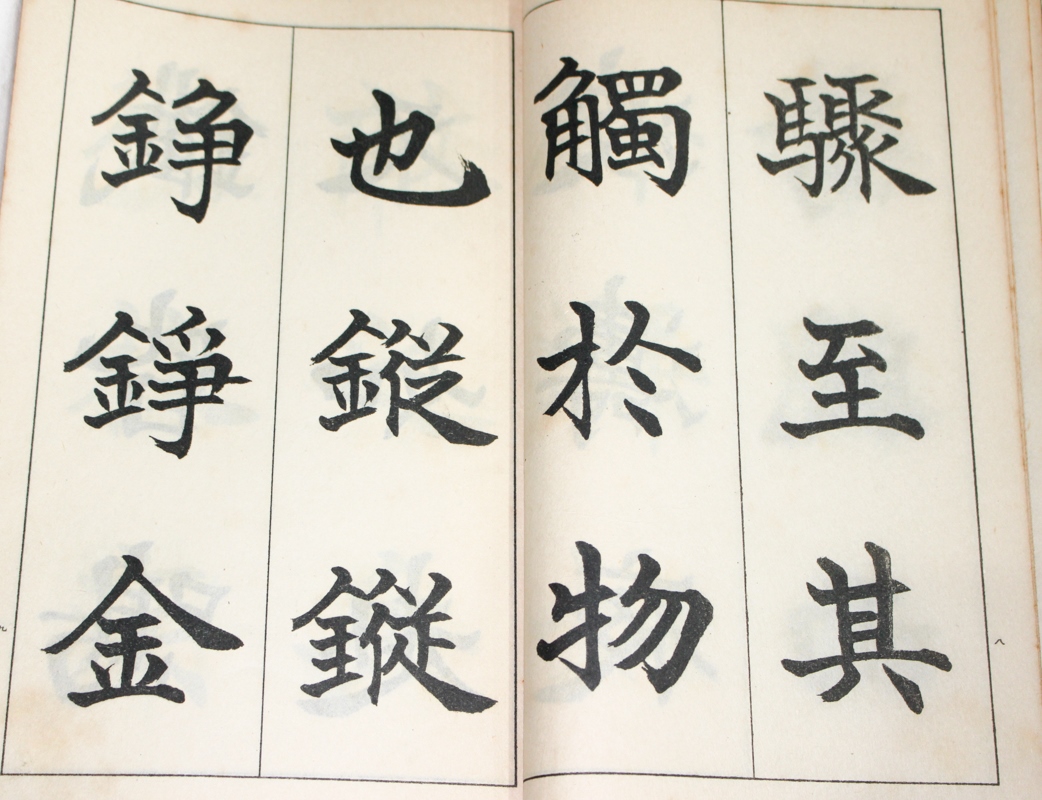 驟至其
觸於物
也鏦鏦
錚錚金